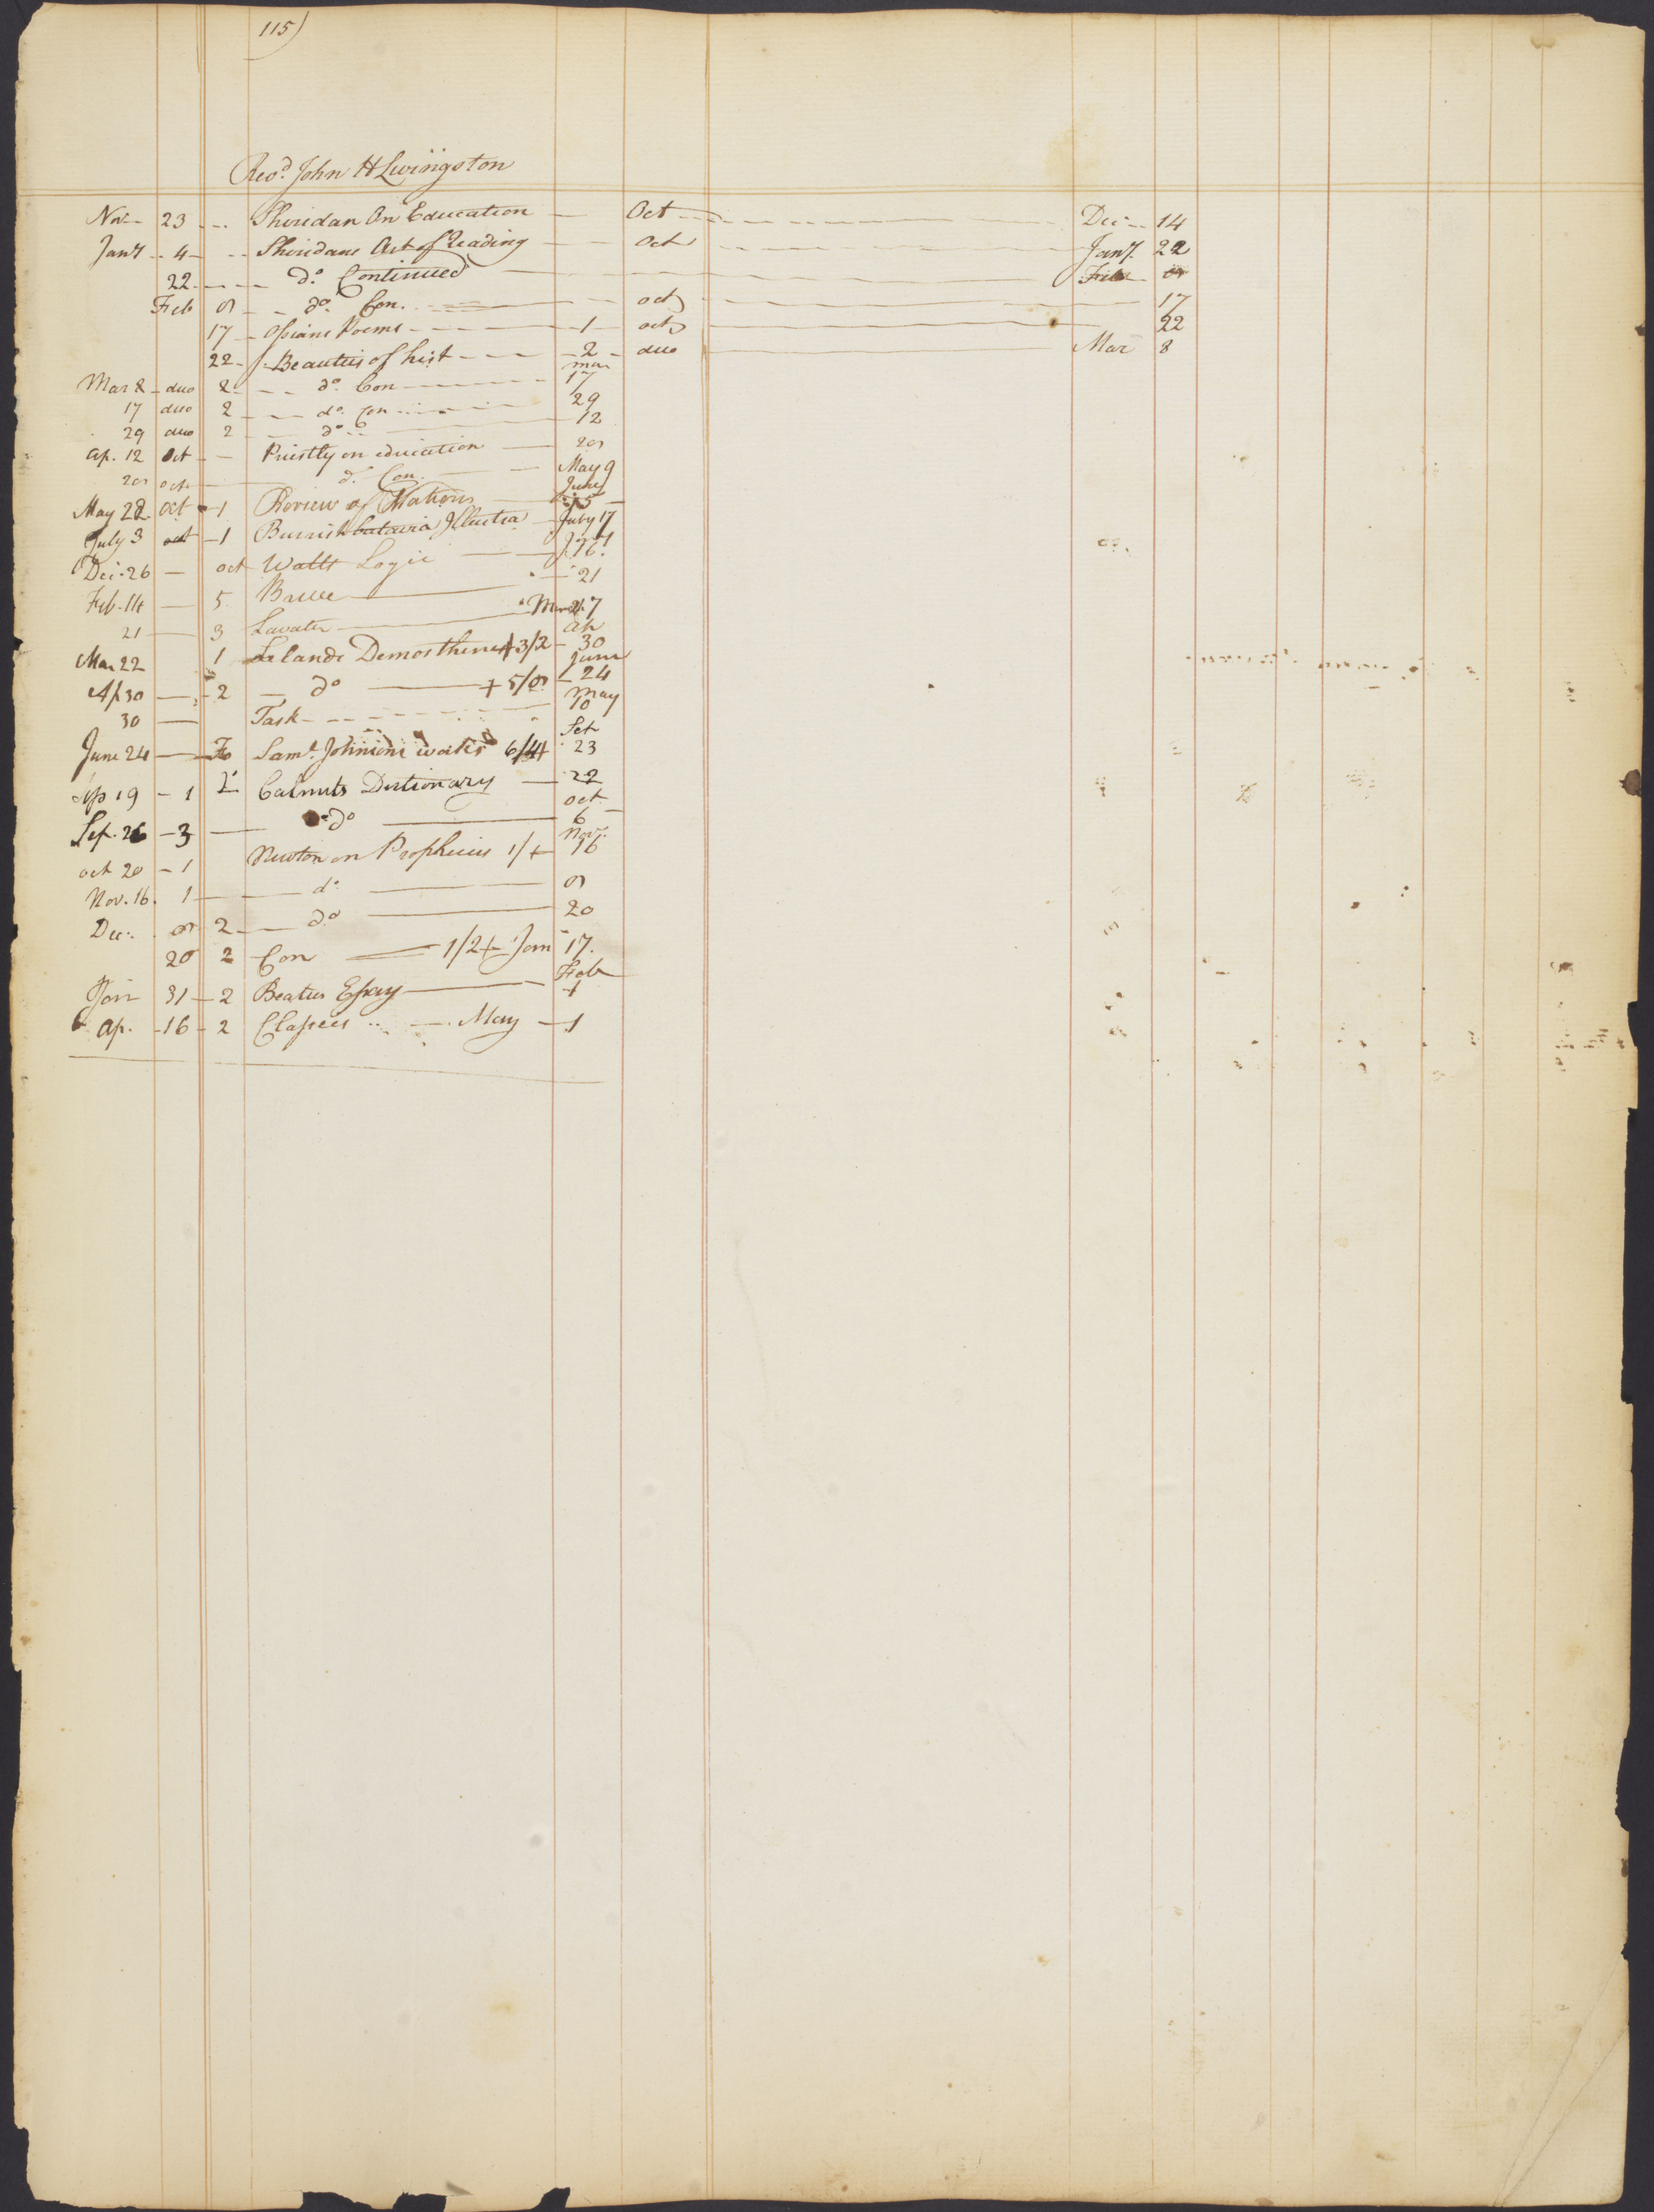 115)
Revd. John H Livingston
Nov. 23 Sheridan On Education Oct Dec 14
Jany 4 Sheridans Art of Reading Oct Jany. 22
22 do. Continued Feb 9
Feb 9 do. Con. oct 17
17 Ossians Poems 1 oct 22
22 Beauties of hist 2 duo Mar 8
Mar 8 duo 2 do. Con mar 17
17 duo 2 do. Con 29
29 duo 2 do. 12
Ap. 12 Oct Priestly on education 20
20 oct do. Con. May 9
May 28 Oct 1 Review of Nations June 15
July 3 oct 1 Burrish batavia Illustra July 17
Dec. 26 oct Watts Logic 16
Feb. 14 5 Bruce 21
21 3 Lavater March 7
Mar 22 1 Lelands Demosthenes + 3/2 Ap 30
Ap 30 2 do + 5/9 June 24
30 Task May 10
June 24 Fo Saml. Johnsons works 6/4+ Set 23
Sep 19 1 Calmets Dictionary 22
Sep. 26 3 do oct 6
oct 20 1 Newton on Prophecies 1/+ Nov. 16
Nov. 16. 1 do. 9
Dec. 9 2 do. 20
20 2 Con 1/2+ Jan 17.
Jan 31 2 Beaties Essay Feb 1
Ap. 16 2 Classics May 1